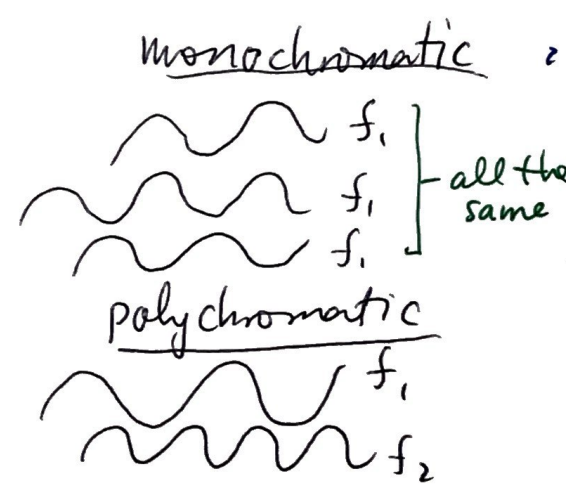 monochromatic
f₁
f₁
all the
same
f₁
polychromatic
f₁
f₂